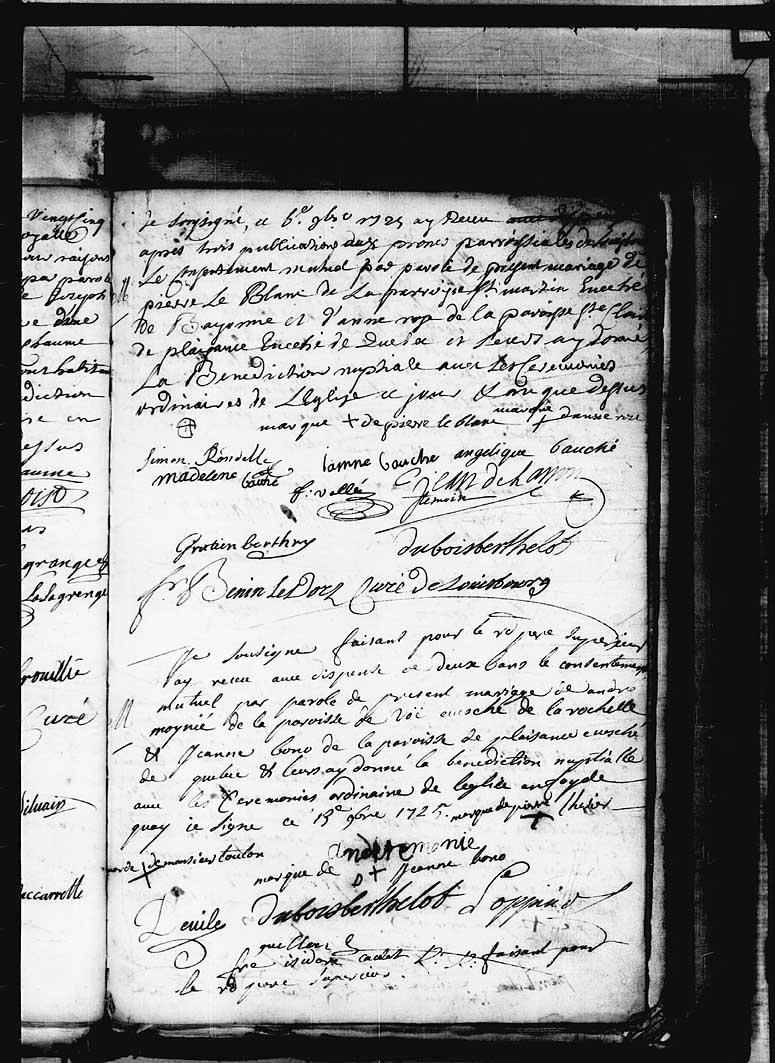 Vingt cinq
raisons
par parole
joseph
baume
habitan
diction
re en
essus
aume
grange
Lasagrenge
rouillie
Curé
accarrette
Je soussigné, ce 6e 9bre 1725 ay Receu
après trois publications aux prones parroissiales de
Le Consentement mutuel par parole de present mariage de
pierre Le Blanc de La parroisse St martin Eveché
De Bayonne et d'anne roze de la paroisse Ste Claire
de plaisance Eveché de Quebec et Leurs ay Donné
La Benediction nuptiale avec Les Ceremonies
ordinaires de L'Eglise ce jour & an que dessus
marque + de pierre le blanc marque + danne roze
Simon Rondell anne Bauché angelique bauché
madelene bauché
f. vallée Jean
temoin
Gratien berthry duboisberthelot
fr. Benin Le Dorz Curé De Louisbourg
M Je soussigne faisant pour le rd pere superieur
ay receu avec dispense de deux bans le consentement
mutuel par parole de present mariage de andre
moynié de la paroisse de eveché de la rochelle
& Jeanne bono de la paroisse de plaisance eveché
de quebec & leurs ay donné la benediction nuptialle
avec les Ceremonies ordinaire de leglise en foy de
quoy ie signe ce 13e 9bre 1725. marque de pierre + Chesier
marque + de monsieur toulon
andre monie
marque de + Jeanne bono
Deuile duboisberthelot Loppinot
quellen
fre isidore caulet faisant pour
le rd pere superieur.